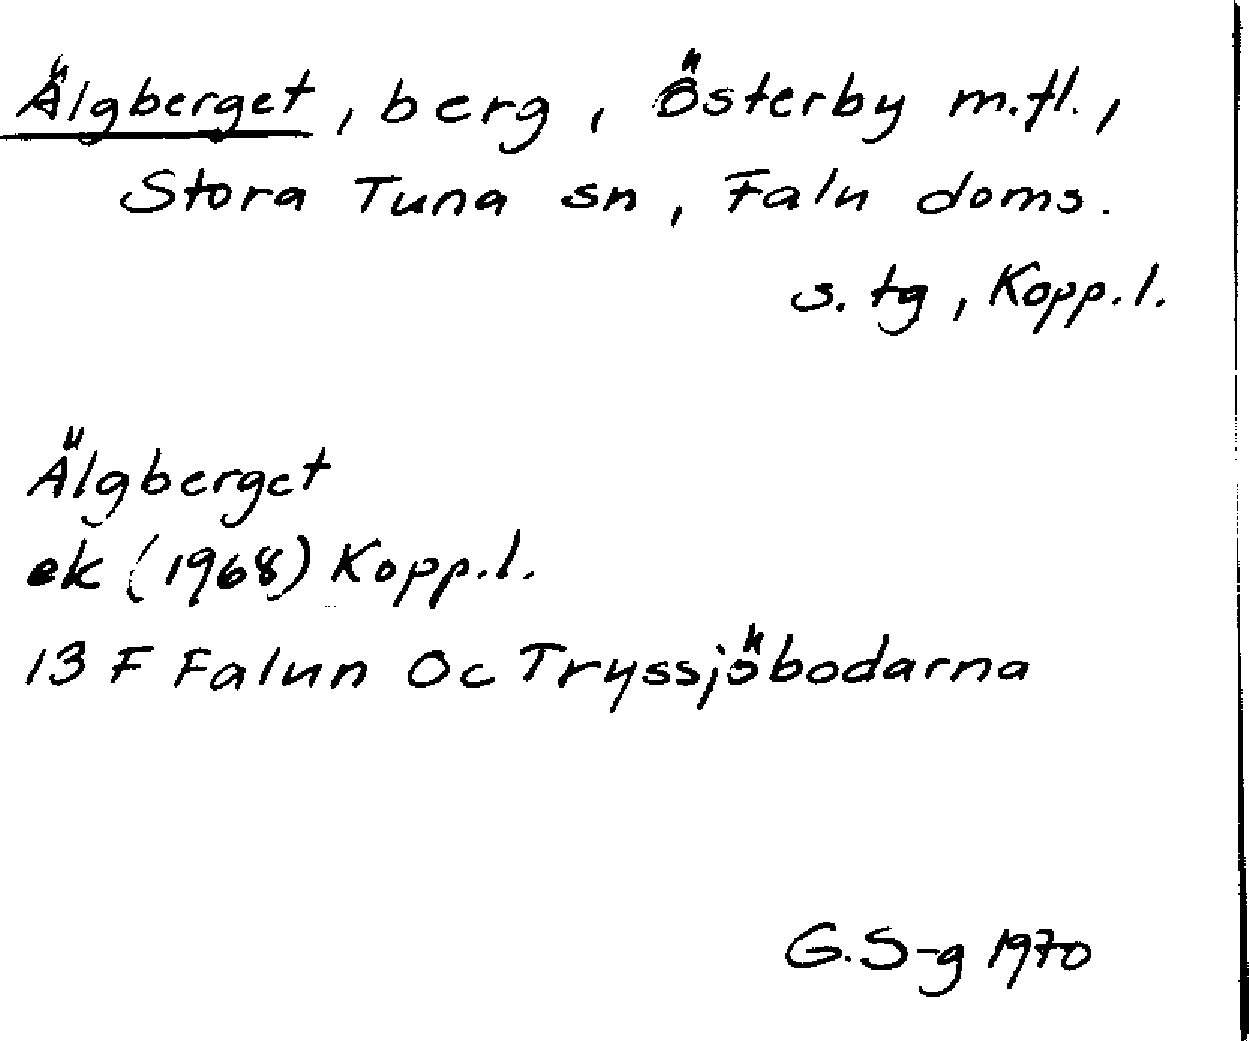 Älgberget, berg, Österby m.fl.,
Stora Tuna sn, Falu doms.
s. tg, Kopp.l.
Älgberget
ek (1968) Kopp.l.
13 F Falun Oc Tryssjöbodarna
G.S-g 1970